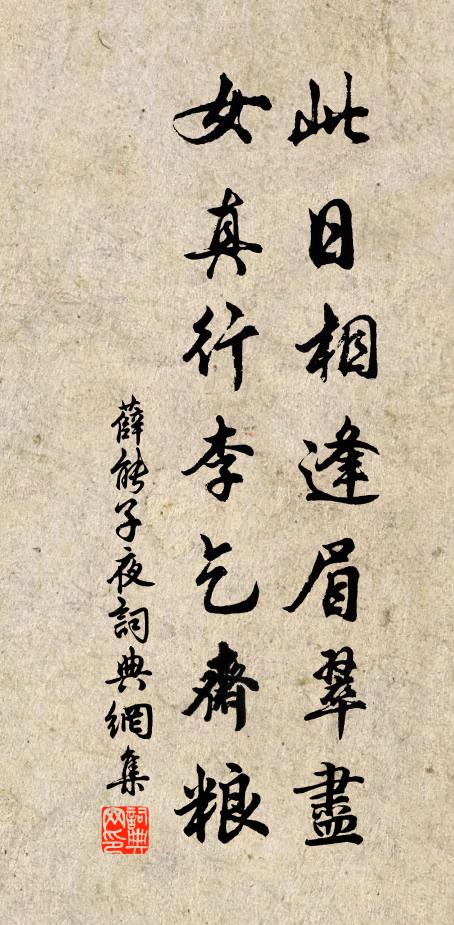 此日相逢眉翠盡
女真行李乞齋粮
薛能子夜詞典網集
詞典網印